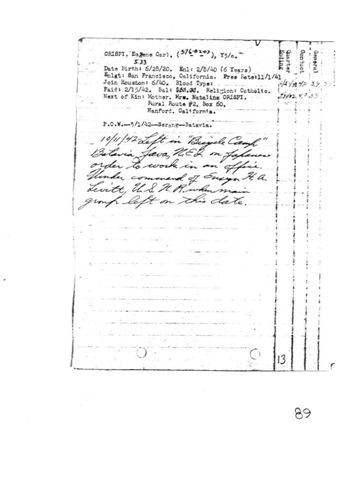 CRISPI, Eugene Carl, (376-82-07), Y3/c.
533
Date Birth: 6/28/20. Enl: 2/8/40 (6 Years)
Enlgt: San Francisco, California. Pres Rate: 11/1/41
Join Houston: 6/40. Blood Type:
Paid: 2/15/42. Bal: Religion: Catholic.
Next of Kin: Mother, Mrs. Natalina CRISPI,
Rural Route #2, Box 60,
Hanford, California.
P.O.W.--3/1/42--Serang--Batavia.
10/11/42 Left in "Bicycle Camp"
Batavia, Java, N.E.I. on Japanese
order to work in an office.
Under command of Ensign H.A.
Levitt, U.S.N.R. when main
group left on this date.
Quarter Ending
Conduct
General
13
89